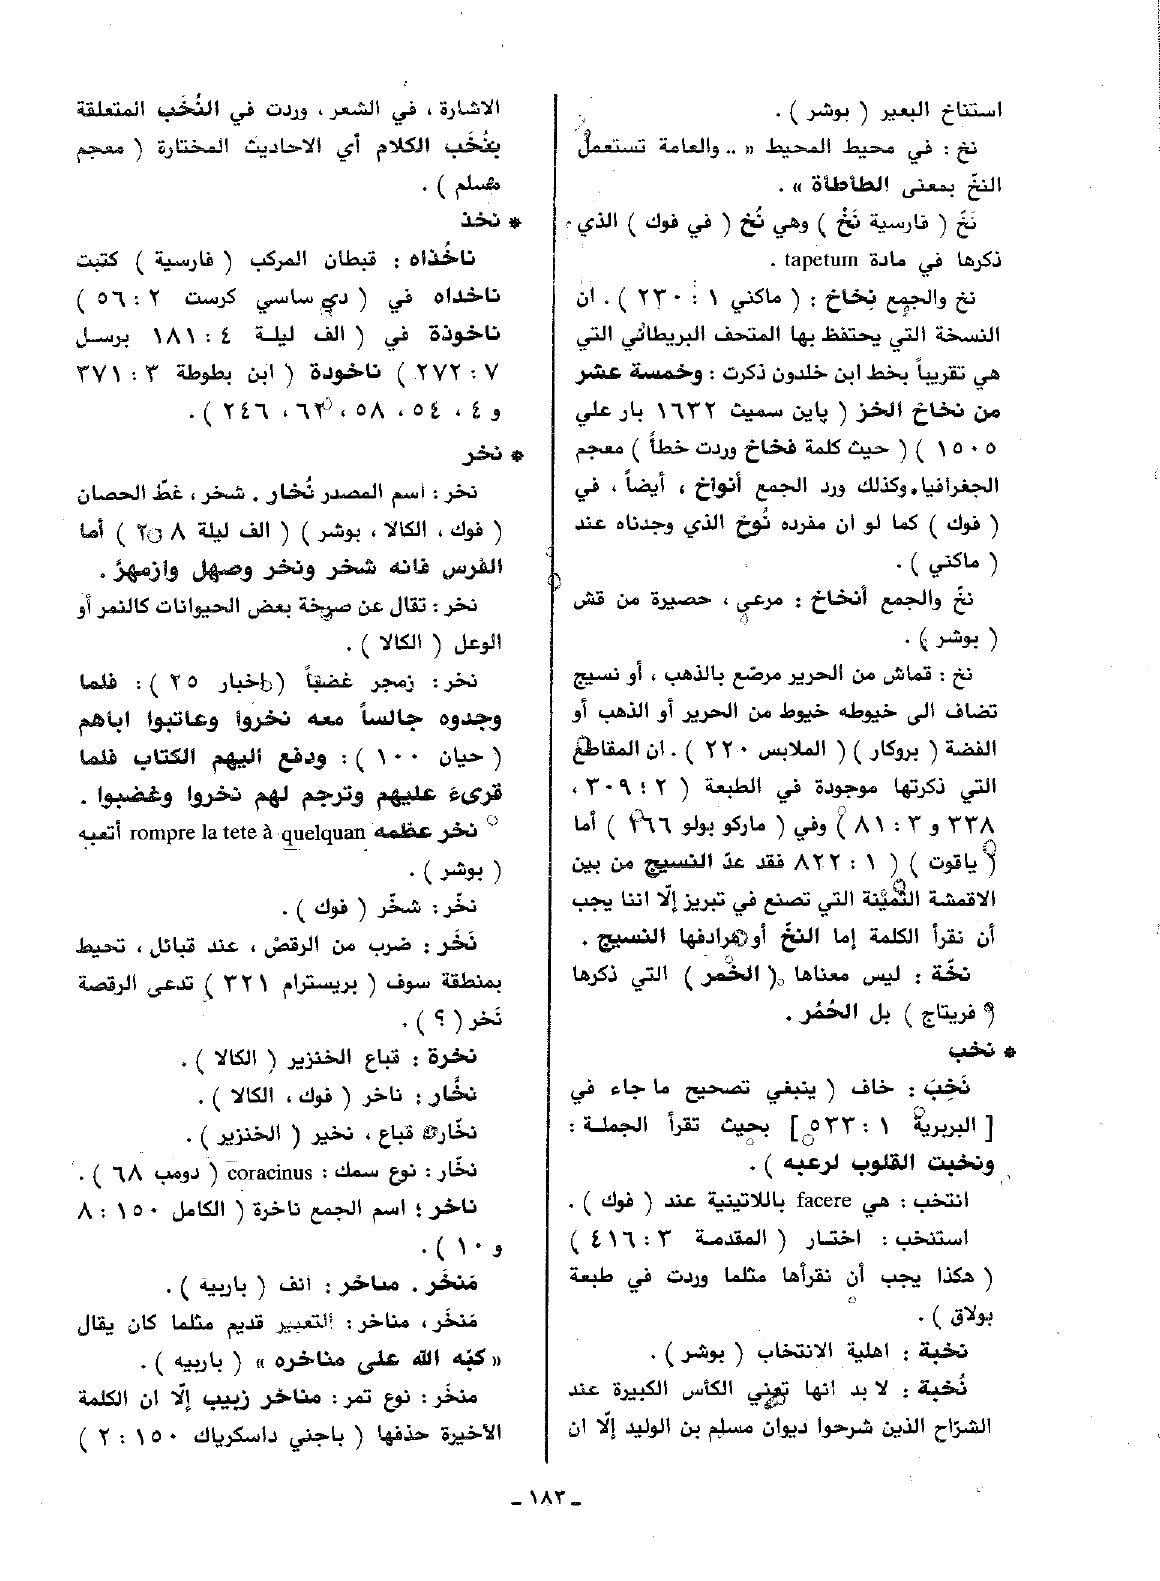 استناخ البعير ( بوشر ) .
نخ : في محيط المحيط « .. والعامة تستعمل
النخّ بمعنى الطاطأة » .
نَخّ ( فارسية نَخْ ) وهي نُخ ( في فوك ) الذي
ذكرها في مادة tapetum .
نخ والجمع نِخاخ : ( ماكني ١ : ٢٣٠ ) . ان
النسخة التي يحتفظ بها المتحف البريطاني التي
هي تقريباً بخط ابن خلدون ذكرت : وخمسة عشر
من نخاخ الخز ( پاين سميث ١٦٣٢ بار علي
١٥٠٥ ) ( حيث كلمة فخاخ وردت خطأ ) معجم
الجغرافيا. وكذلك ورد الجمع أنواخ ، أيضاً ، في
( فوك ) كما لو ان مفرده نُوخ الذي وجدناه عند
( ماكني ) .
نخّ والجمع أنخاخ : مرعي ، حصيرة من قش
( بوشر ) .
نخ : قماش من الحرير مرصّع بالذهب ، أو نسيج
تضاف الى خيوطه خيوط من الحرير أو الذهب أو
الفضة ( بروكار ) ( الملابس ٢٢٠ ) . ان المقاطع
التي ذكرتها موجودة في الطبعة ( ٢ : ٣٠٩ ،
٣٣٨ و ٣ : ٨١ ) وفي ( ماركو بولو ١٦٦ ) أما
( ياقوت ) ( ١ : ٨٢٢ فقد عدّ النسيج من بين
الاقمشة الثمينة التي تصنع في تبريز إلّا اننا يجب
أن نقرأ الكلمة إما النخّ أو مرادفها النسيج .
نخّة : ليس معناها ( الخمر ) التي ذكرها
( فريتاج ) بل الحُمُر .
* نخب
نَخِبَ : خاف ( ينبغي تصحيح ما جاء في
[ البربرية ١ : ٥٣٣ ] بحيث تقرأ الجملة :
ونخبت القلوب لرعبه ) .
انتخب : هي facere باللاتينية عند ( فوك ) .
استنخب : اختار ( المقدمة ٣ : ٤١٦ )
( هكذا يجب أن نقرأها مثلما وردت في طبعة
بولاق ) .
نخبة : اهلية الانتخاب ( بوشر ) .
نُخبة : لا بد انها تعني الكأس الكبيرة عند
الشرّاح الذين شرحوا ديوان مسلم بن الوليد إلّا ان
الاشارة ، في الشعر ، وردت في النُخَب المتعلقة
بنُخَب الكلام أي الاحاديث المختارة ( معجم
مسلم ) .
* نخذ
ناخُذاه : قبطان المركب ( فارسية ) كتبت
ناخداه في ( دي ساسي كرست ٢ : ٥٦ )
ناخوذة في ( الف ليلة ٤ : ١٨١ برسل
٧ : ٢٧٢ ) ناخودة ( ابن بطوطة ٣ : ٣٧١
و ٤ ، ٥٤ ، ٥٨ ، ٦٢ ، ٢٤٦ ) .
* نخر
نخر : اسم المصدر نُخار . شخر ، غطّ الحصان
( فوك ، الكالا ، بوشر ) ( الف ليلة ٨ : ٢ ) أما
الفرس فانه شخر ونخر وصهل وازمهرّ .
نخر : تقال عن صرخة بعض الحيوانات كالنمر أو
الوعل ( الكالا ) .
نخر : زمجر غضباً ( اخبار ٢٥ ) : فلما
وجدوه جالساً معه نخروا وعاتبوا اباهم
( حيان ١٠٠ ) : ودفع اليهم الكتاب فلما
قرىءَ عليهم وترجم لهم نخروا وغضبوا .
نخر عظمه rompre la tete à quelquan أتعبه
( بوشر ) .
نخّر : شخّر ( فوك ) .
نَخَر : ضرب من الرقص ، عند قبائل ، تحيط
بمنطقة سوف ( بريسترام ٣٢١ ) تدعى الرقصة
نَخر ( ؟ ) .
نخرة : قباع الخنزير ( الكالا ) .
نخَّار : ناخر ( فوك ، الكالا ) .
نخّار : قباع ، نخير ( الخنزير ) .
نخّار : نوع سمك : coracinus ( دومب ٦٨ ) .
ناخر ؛ اسم الجمع ناخرة ( الكامل ١٥٠ : ٨
و ١٠ ) .
مَنخَر . مناخر : انف ( باربيه ) .
مَنخَر ، مناخر : التعبير قديم مثلما كان يقال
« كبّه الله على مناخره » ( باربيه ) .
منخَر : نوع تمر : مناخر زبيب إلّا ان الكلمة
الأخيرة حذفها ( باجني داسكرياك ١٥٠ : ٢ )
ـ ١٨٣ ـ